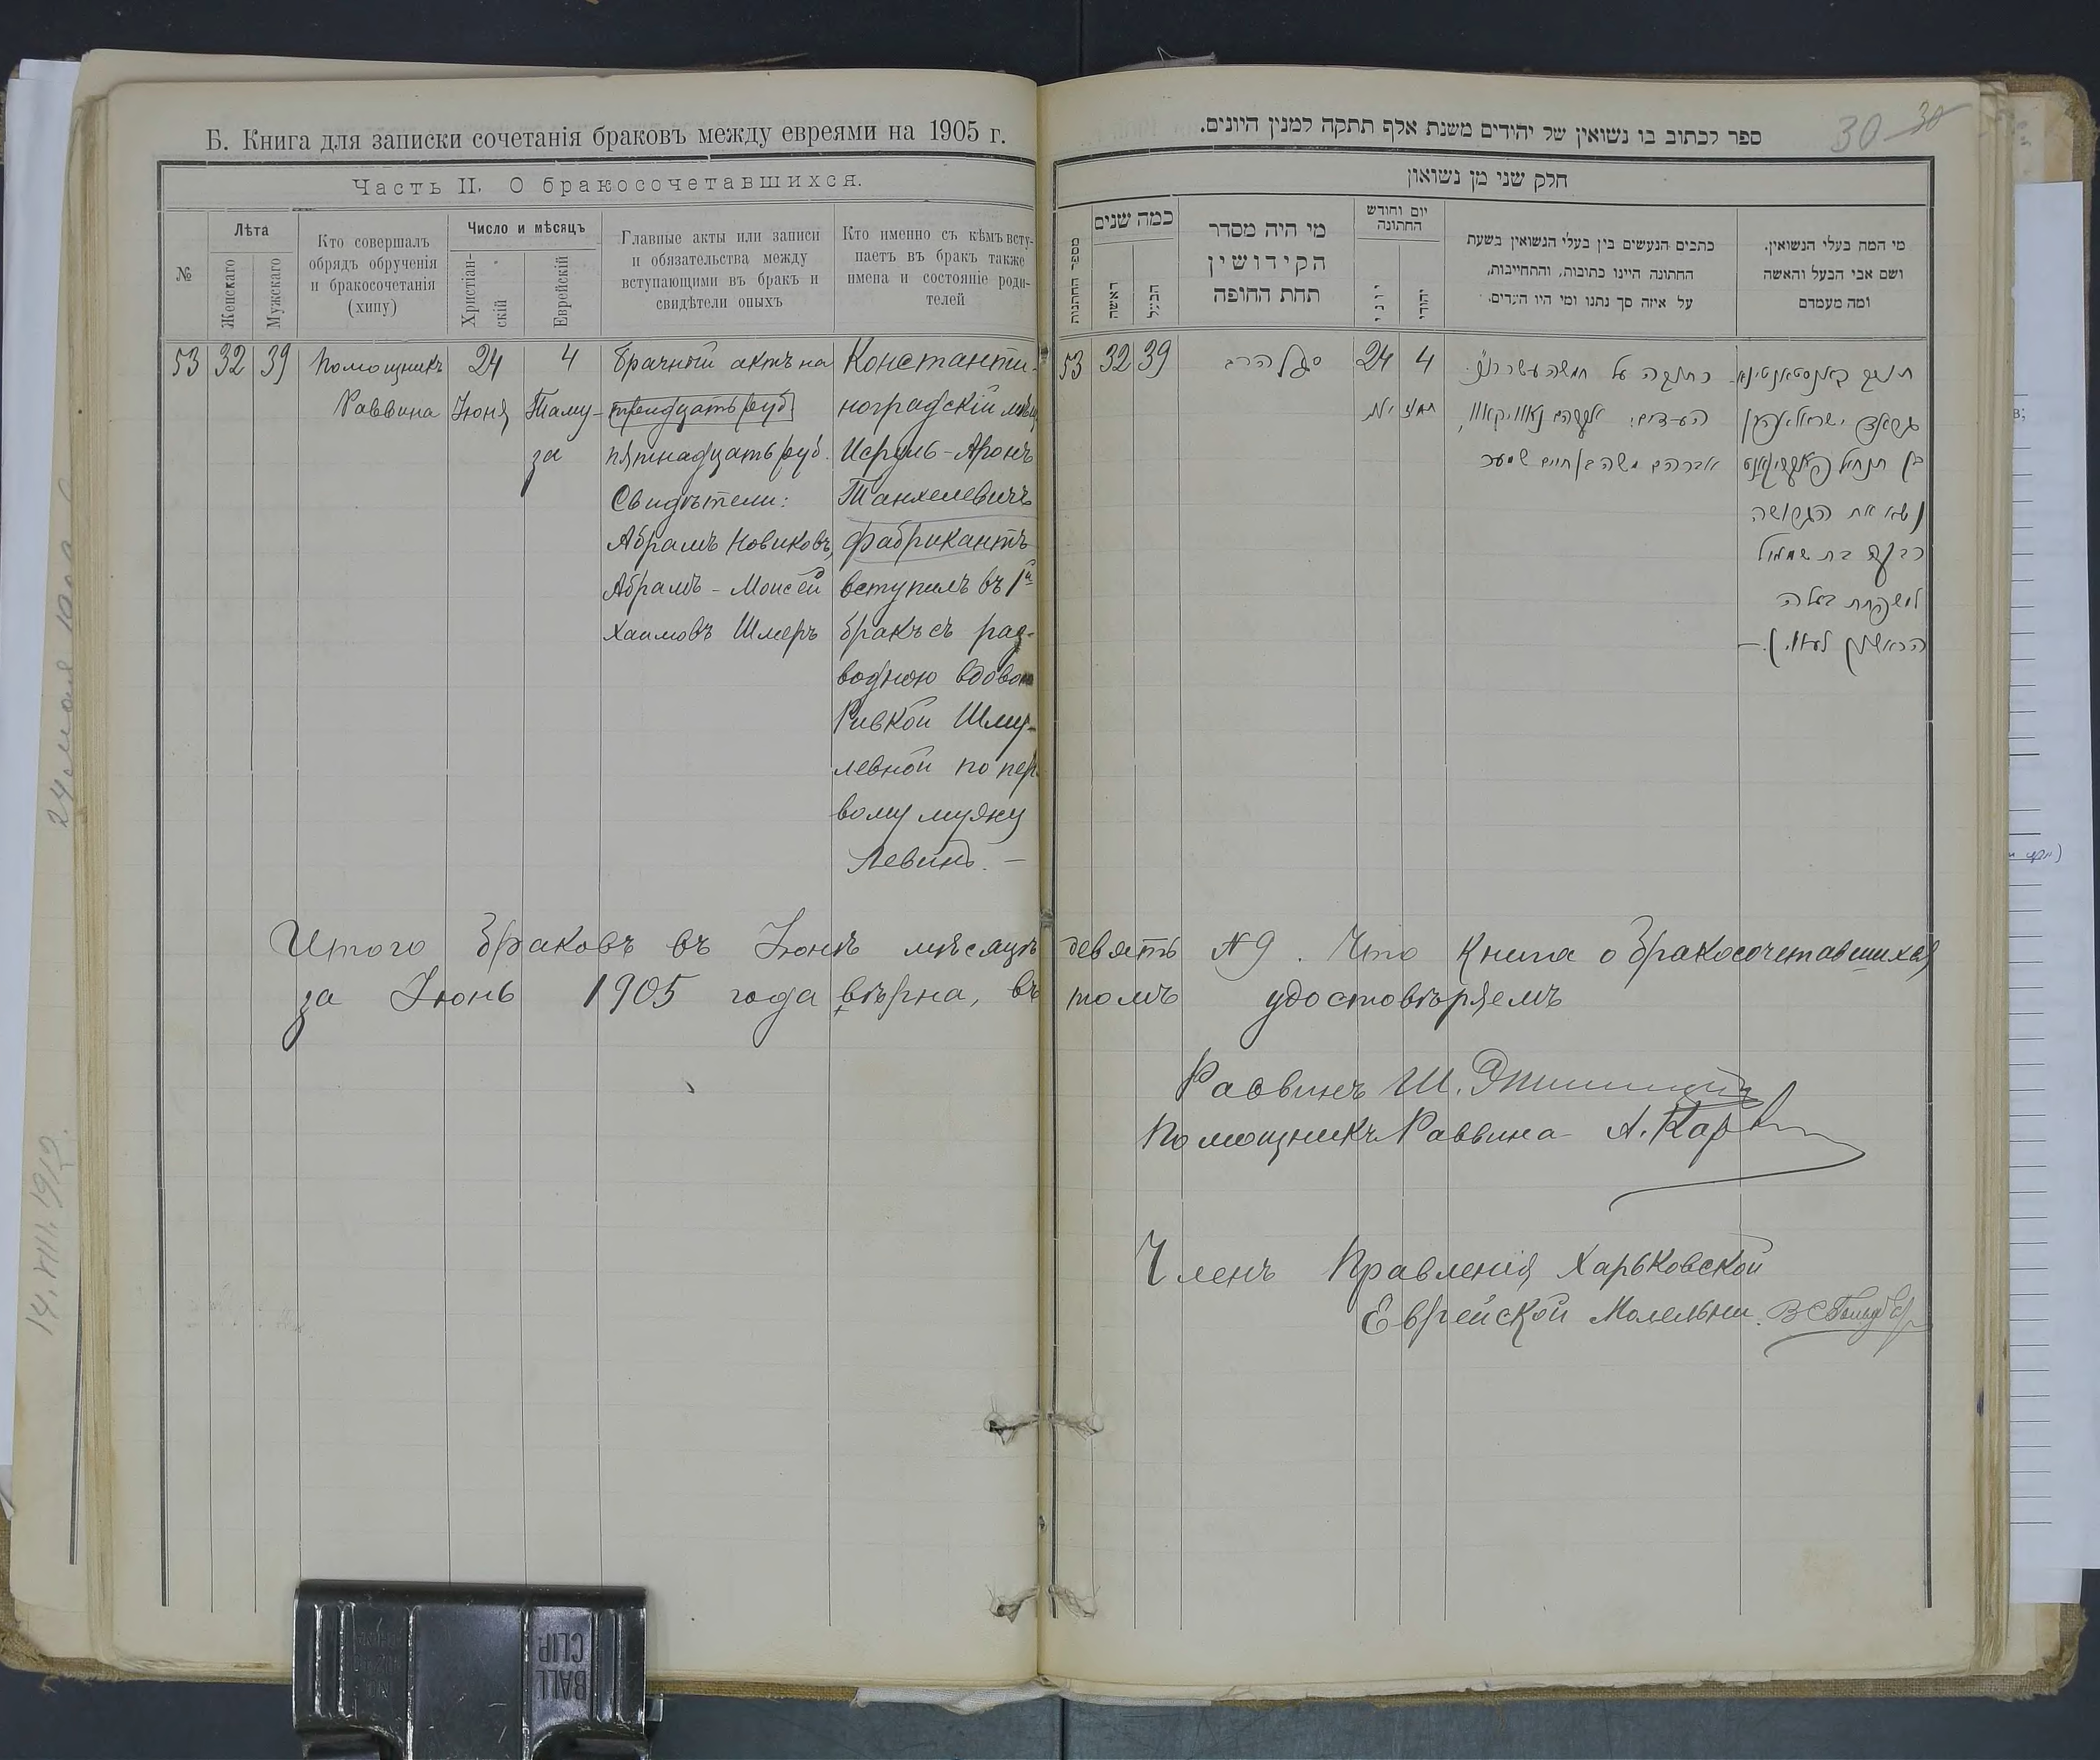 Б. Книга для записки сочетанія браковъ между евреями на 1905 г.
Часть II. О бракосочетавшихся.
№
Лѣта
Женскаго
Мужскаго
Кто совершалъ
обрядъ обрученія
и бракосочетанія
(хипу)
Число и мѣсяцъ
Христіан-
скій
Еврейскій
Главные акты или записи
и обязательства между
вступающими въ бракъ и
свидѣтели оныхъ
Кто именно съ кѣмъ всту-
паетъ въ бракъ также
имена и состояніе роди-
телей
53
32
39
Помощникъ
Раввина
24
Іюня
4
Таму-
за
Брачный актъ на
тридцать руб
пятнадцать руб.
Свидѣтели:
Абрамъ Новиковъ,
Абрамъ-Моисей
Хаимовъ Шмеръ
Константи-
ноградскій мѣщ.
Исруль-Аронъ
Танхелевичъ
Фабрикантъ
вступилъ въ 1й
бракъ съ раз-
водною вдовою
Ривкой Шму-
левной по пер-
вому мужу
Левинъ. —
ספר לכתוב בו נשואין של יהודים משנת אלף תתקה למנין היונים.
30 30
חלק שני מן נשואון
מספר החתונות
כמה שנים
האשה
הבעל
מי היה מסדר
הקידושין
תחת החופה
יום וחודש
החתונה
יוני
יהודי
כתבים הנעשים בין בעלי הנשואין בשעת
החתונה היינו כתובות, והתחייבות,
על איזה סך נתנו ומי היו העדים.
מי המה בעלי הנשואין.
ושם אבי הבעל והאשה
ומה מעמדם
53
32
39
סגן הרב
24
4
תמוז
על חמשה עשר
העדים:
אברהם משה בן חיים
ישראל אהרן
בן
נשא את הגרושה
רבקה בת שמואל
למשפחת בעלה
הראשון לעווין. —
Итого браковъ въ Іюнѣ мѣсяцѣ девять № 9. Что книга о бракосочетавшихся
за Іюнь 1905 года вѣрна, въ томъ удостовѣряемъ
Раввинъ Ш.
Помощникъ Раввина А.
Членъ Правленія Харьковской
Еврейской Молельни
14. VIII. 1912.
BALL
CLIP